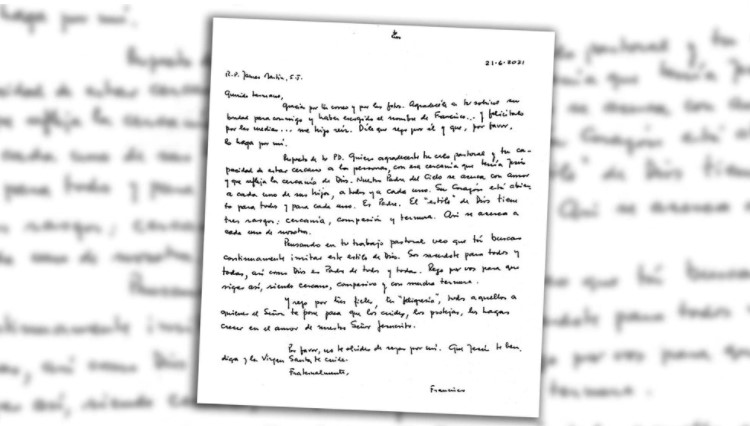 21-6-2021
R.P. James Martin, S.J.
Querido hermano,
Gracias por tu correo y por las fotos. Agradecele a tu sobrino su
bondad para conmigo y haber escogido el nombre de Francisco... y felicitalo
por las medias... me hizo reír. Dile que rezo por él y que, por favor,
lo haga por mí.
Respecto de tu PD. Quiero agradecerte tu celo pastoral y tu ca-
pacidad de estar cercano a las personas, con esa cercanía que tenía Jesús
y que refleja la cercanía de Dios. Nuestro Padre del Cielo se acerca con amor
a cada uno de sus hijos, a todos y a cada uno. Su Corazón está abier-
to para todos y para cada uno. Es Padre. El "estilo" de Dios tiene
tres rasgos: cercanía, compasión y ternura. Así se acerca a
cada uno de nosotros.
Pensando en tu trabajo pastoral veo que tú buscas
continuamente imitar este estilo de Dios. Sos sacerdote para todos y
todas, así como Dios es Padre de todos y todas. Rezo por vos para que
sigas así, siendo cercano, compasivo y con mucha ternura.
Y rezo por tus fieles, tu "feligresía", todos aquellos a
quienes el Señor te pone para que los cuides, los protejas, los hagas
crecer en el amor de nuestro Señor Jesucristo.
Por favor, no te olvides de rezar por mí. Que Jesús te ben-
diga y la Virgen Santa te cuide.
Fraternalmente,
Francisco